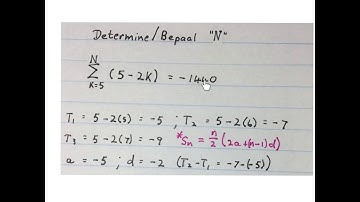 Determine/Bepaal "N"
N
∑ (5 - 2K) = -1440
K=5
T₁ = 5 - 2(5) = -5 ; T₂ = 5 - 2(6) = -7
T₃ = 5 - 2(7) = -9 *Sn = n/2 (2a+(n-1)d)
a = -5 ; d = -2 (T₂ - T₁ = -7-(-5))